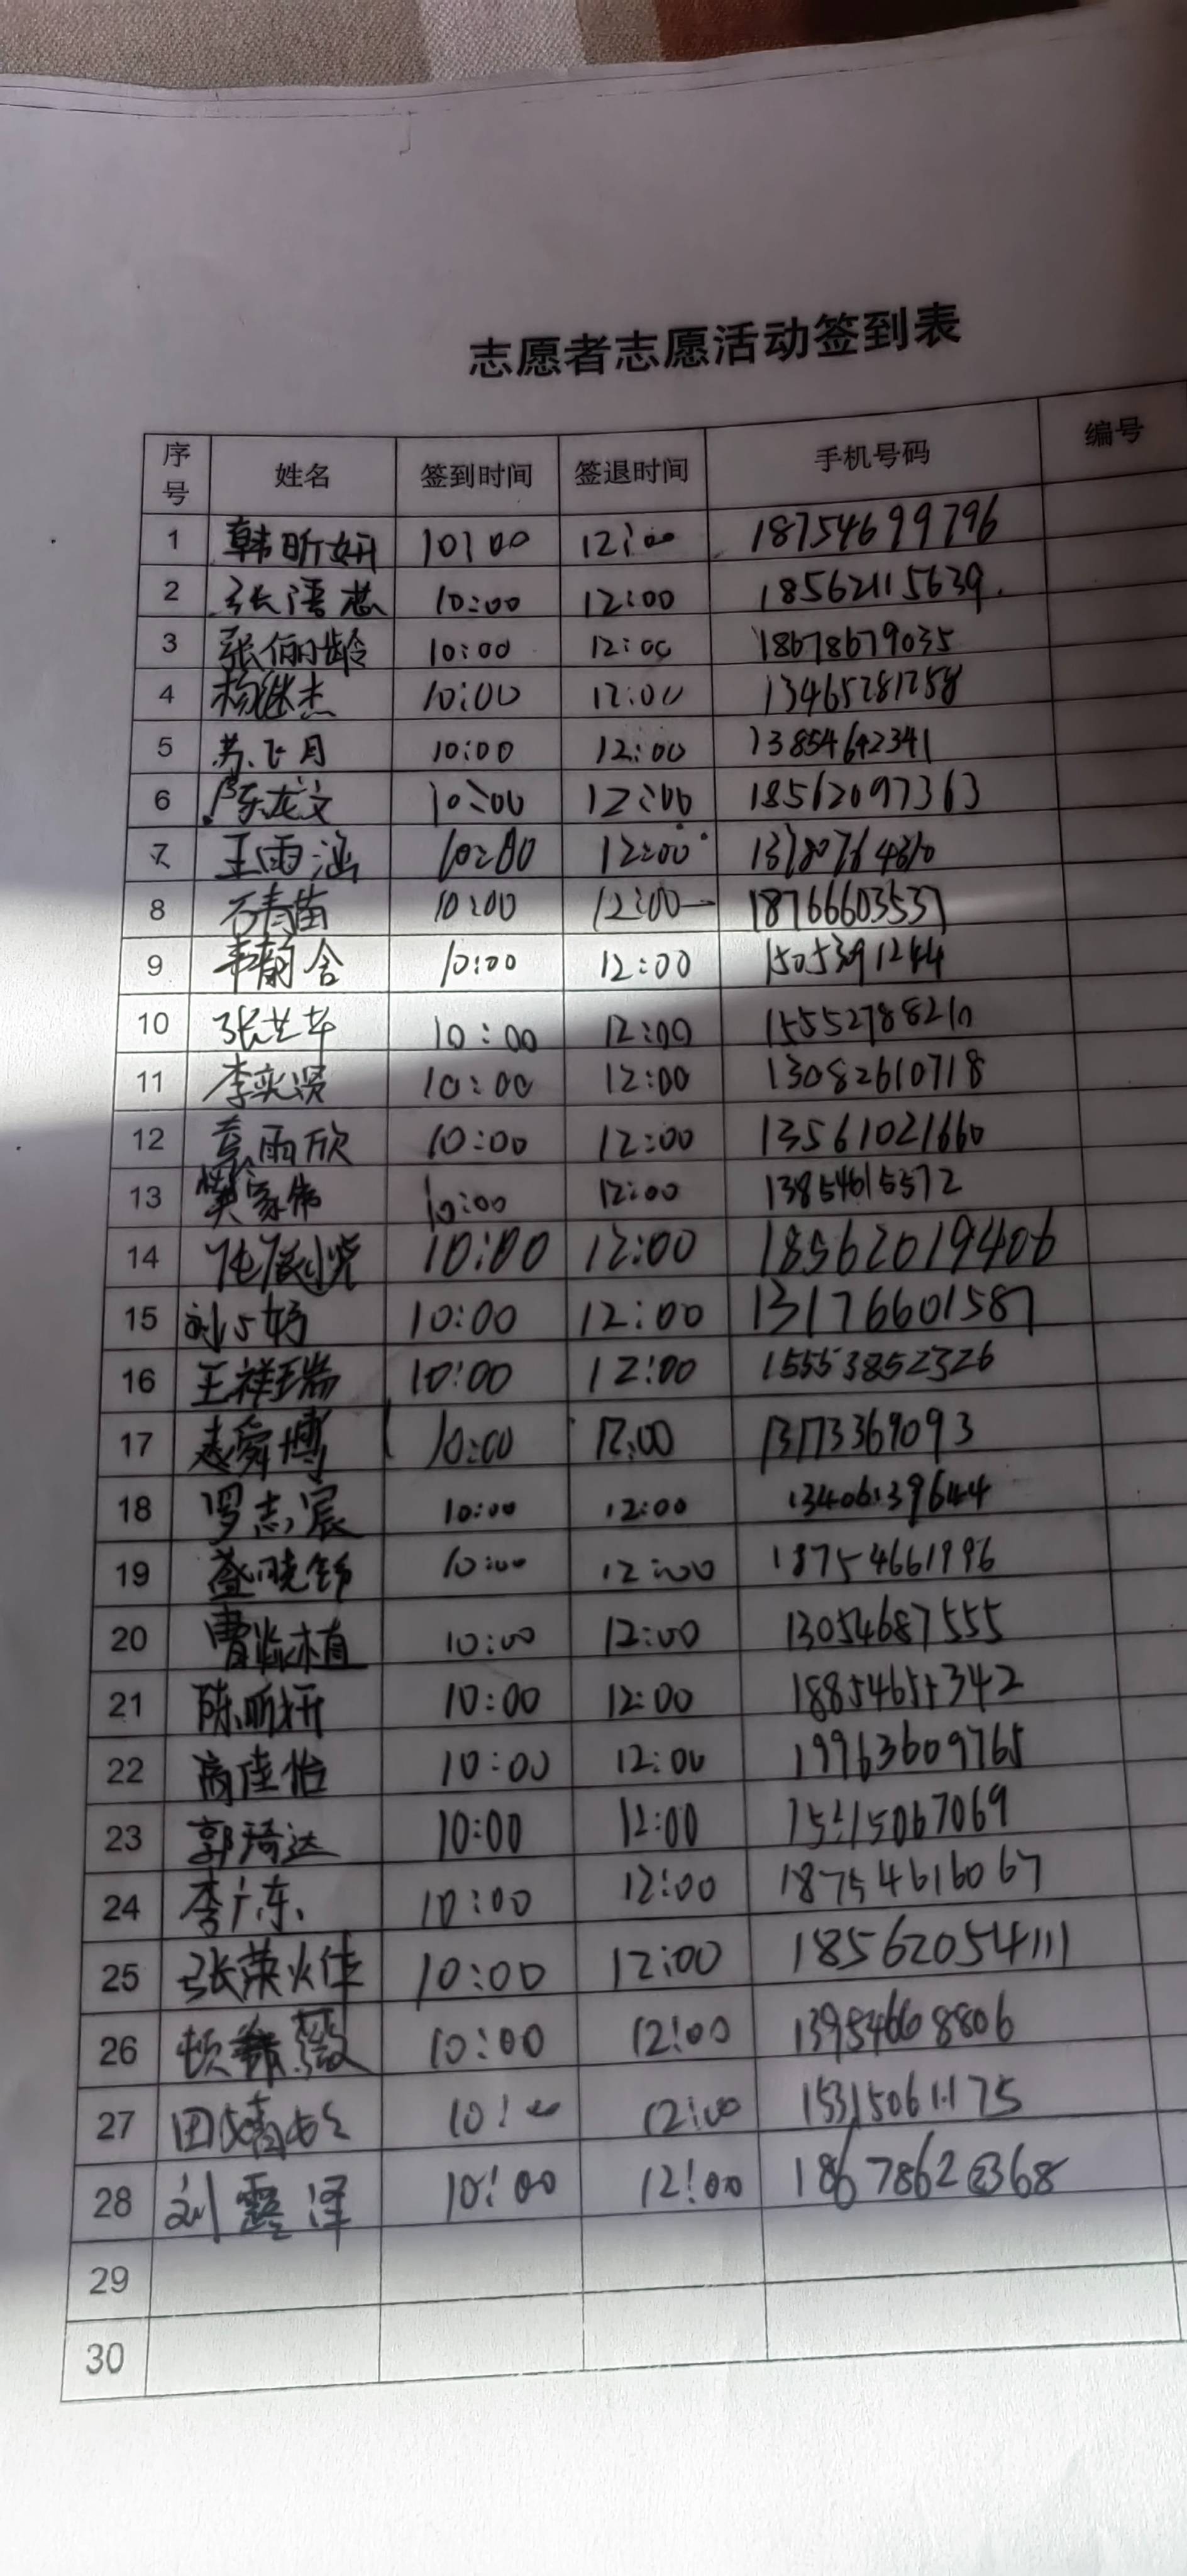 志愿者志愿活动签到表
序号 姓名 签到时间 签退时间 手机号码 编号
1 韩昕妍 10:00 12:00 18754699796
2 张语芯 10:00 12:00 18562115639
3 张俪龄 10:00 12:00 18678679035
4 杨继杰 10:00 12:00 13465281258
5 苏飞月 10:00 12:00 13854642341
6 陈龙文 10:00 12:00 18562097363
7 王雨涵 10:00 12:00
8 石青苗 10:00 12:00 18766603537
9 韦蔚含 10:00 12:00
10 张芷华 10:00 12:00 15552788210
11 李奕贤 10:00 12:00 13082610718
12 雨欣 10:00 12:00 13561021660
13 樊家伟 10:00 12:00 13854615572
14 10:00 12:00 18562019406
15 刘 10:00 12:00 13176601587
16 王祥瑞 10:00 12:00 15553852326
17 赵舜博 10:00 12:00 13173369093
18 罗志宸 10:00 12:00 13406139644
19 晓 10:00 12:00 18754661996
20 曹 植 10:00 12:00 13054687555
21 陈昕妍 10:00 12:00 18854655342
22 高佳怡 10:00 12:00 19963609765
23 郭琦达 10:00 12:00 15215067069
24 李广东 10:00 12:00 18754616067
25 张荣 10:00 12:00 18562054111
26 10:00 12:00 13954668806
27 田婧 10:00 12:00 15315061175
28 刘露泽 10:00 12:00
29
30